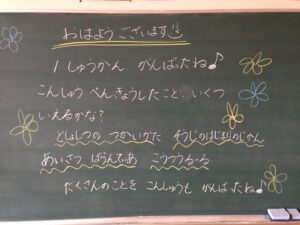 おはようございます
1しゅうかん、がんばったね♪
こんしゅうべんきょうしたこと、いくつ
いえるかな？
としょしつの つかいかた そうじのはじまりのじかん
あいさつ ぼらんてぃあ こうつうるーる
たくさんのことを こんしゅうも がんばったね♪